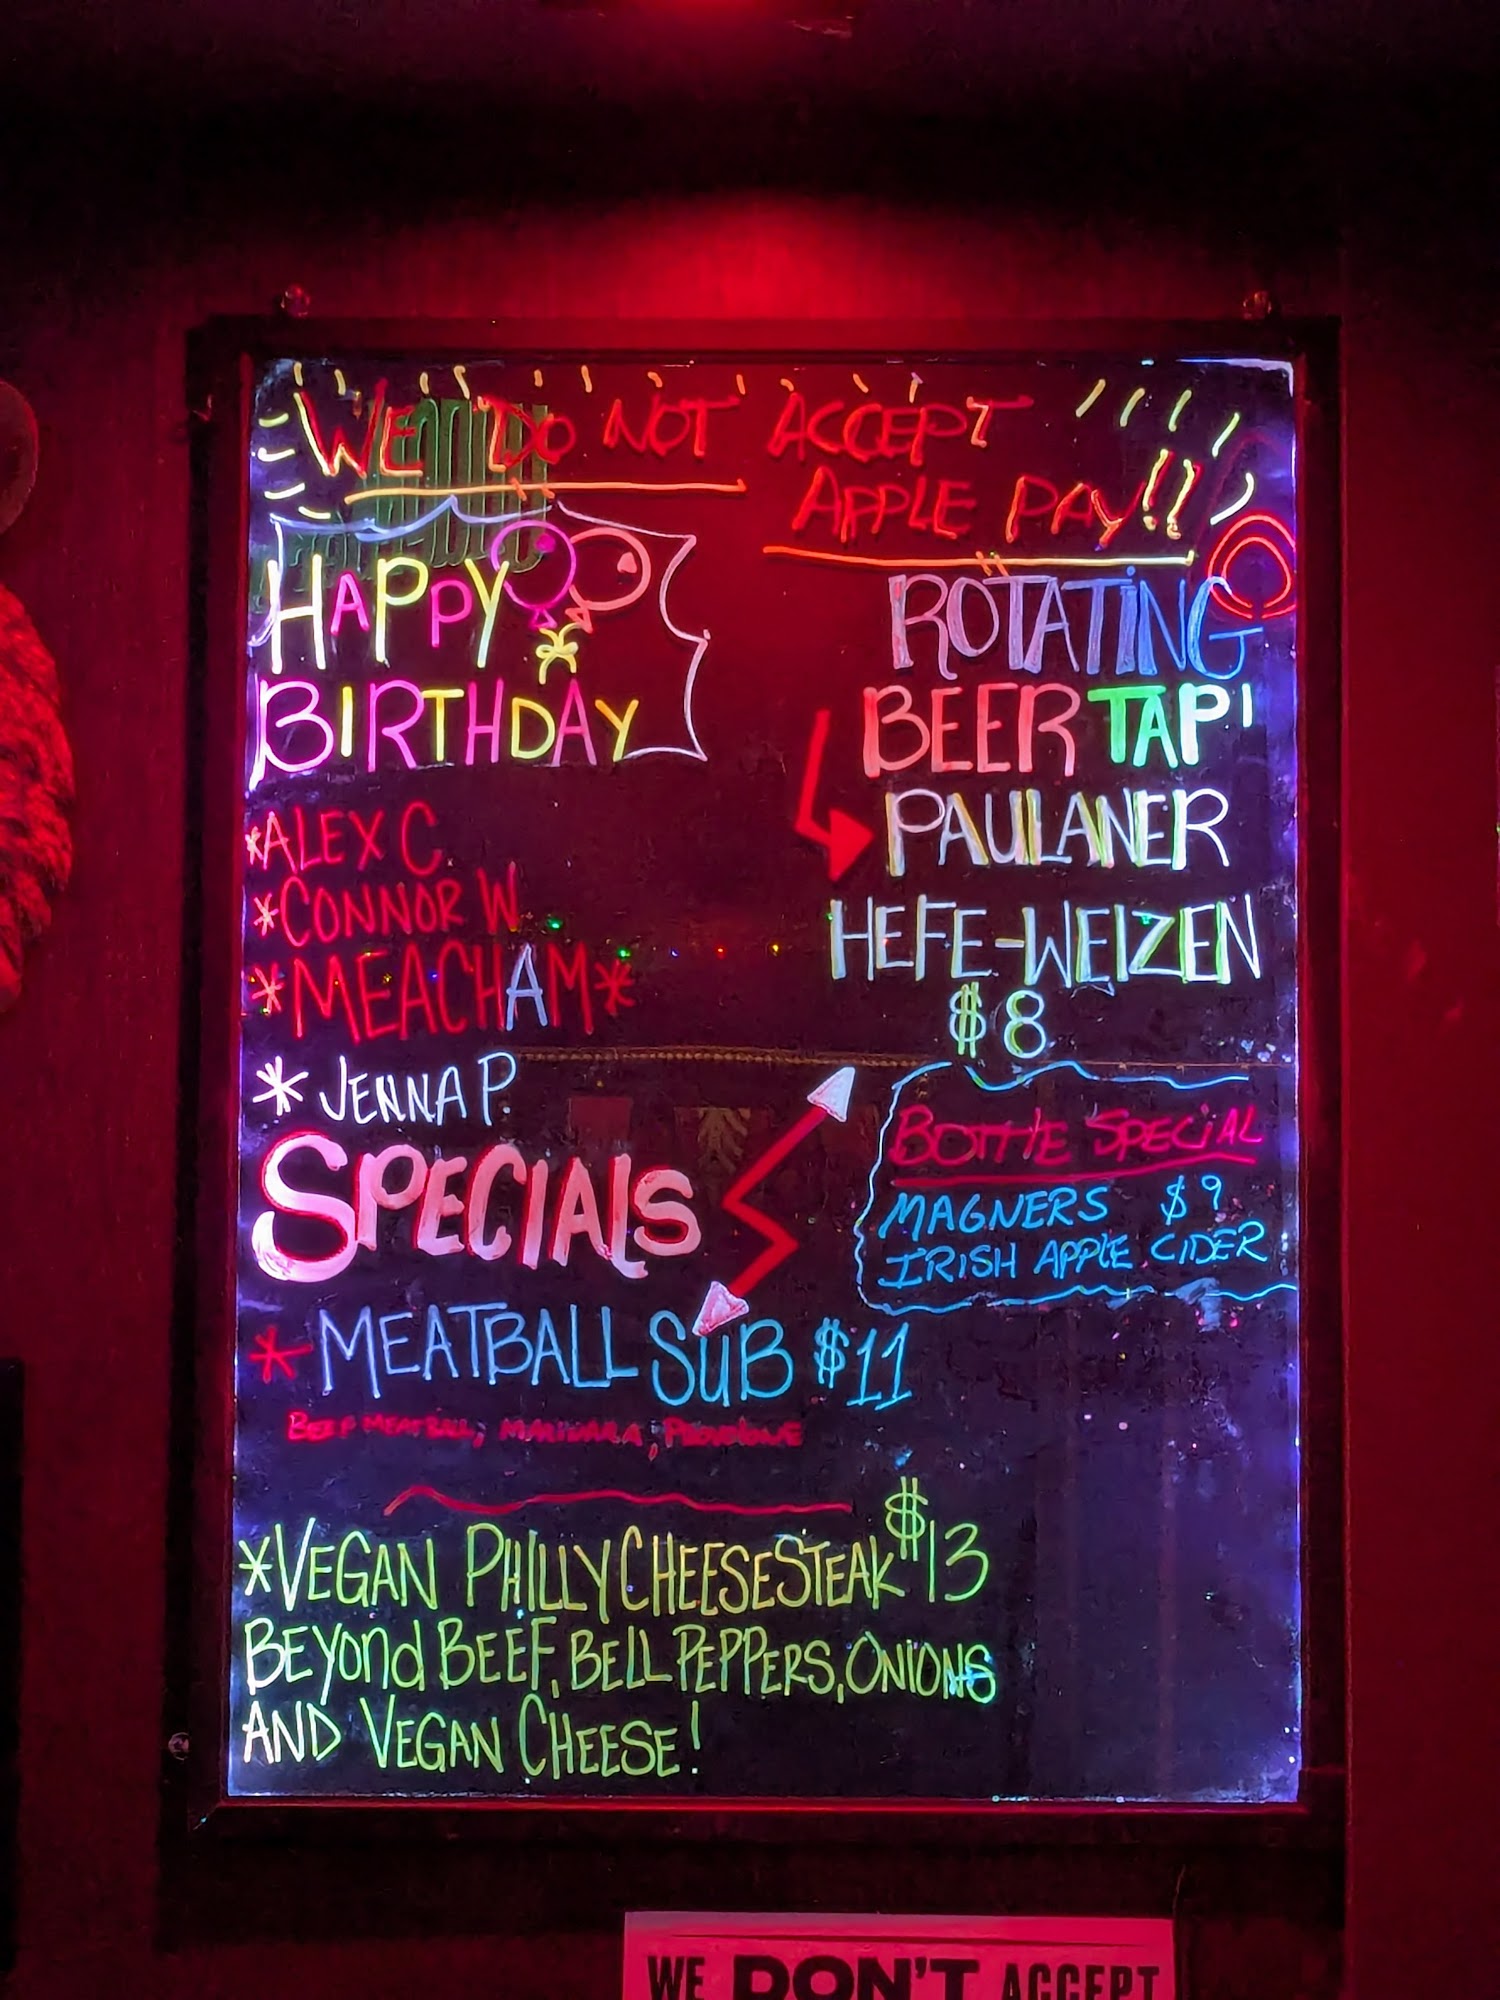 WE DO NOT ACCEPT
APPLE PAY!!
HAPPY
BIRTHDAY
*ALEX C
*CONNOR W
*MEACHAM*
*JENNA P.
ROTATING
BEER TAP!
PAULANER
HEFE-WEIZEN
$8
BOTTLE SPECIAL
MAGNERS $9
IRISH APPLE CIDER
SPECIALS
*MEATBALL SUB $11
BEEF MEATBALL, MARINARA, PROVOLONE
*VEGAN PHILLY CHEESESTEAK $13
BEYOND BEEF, BELL PEPPERS, ONIONS
AND VEGAN CHEESE!
WE DON'T ACCEPT